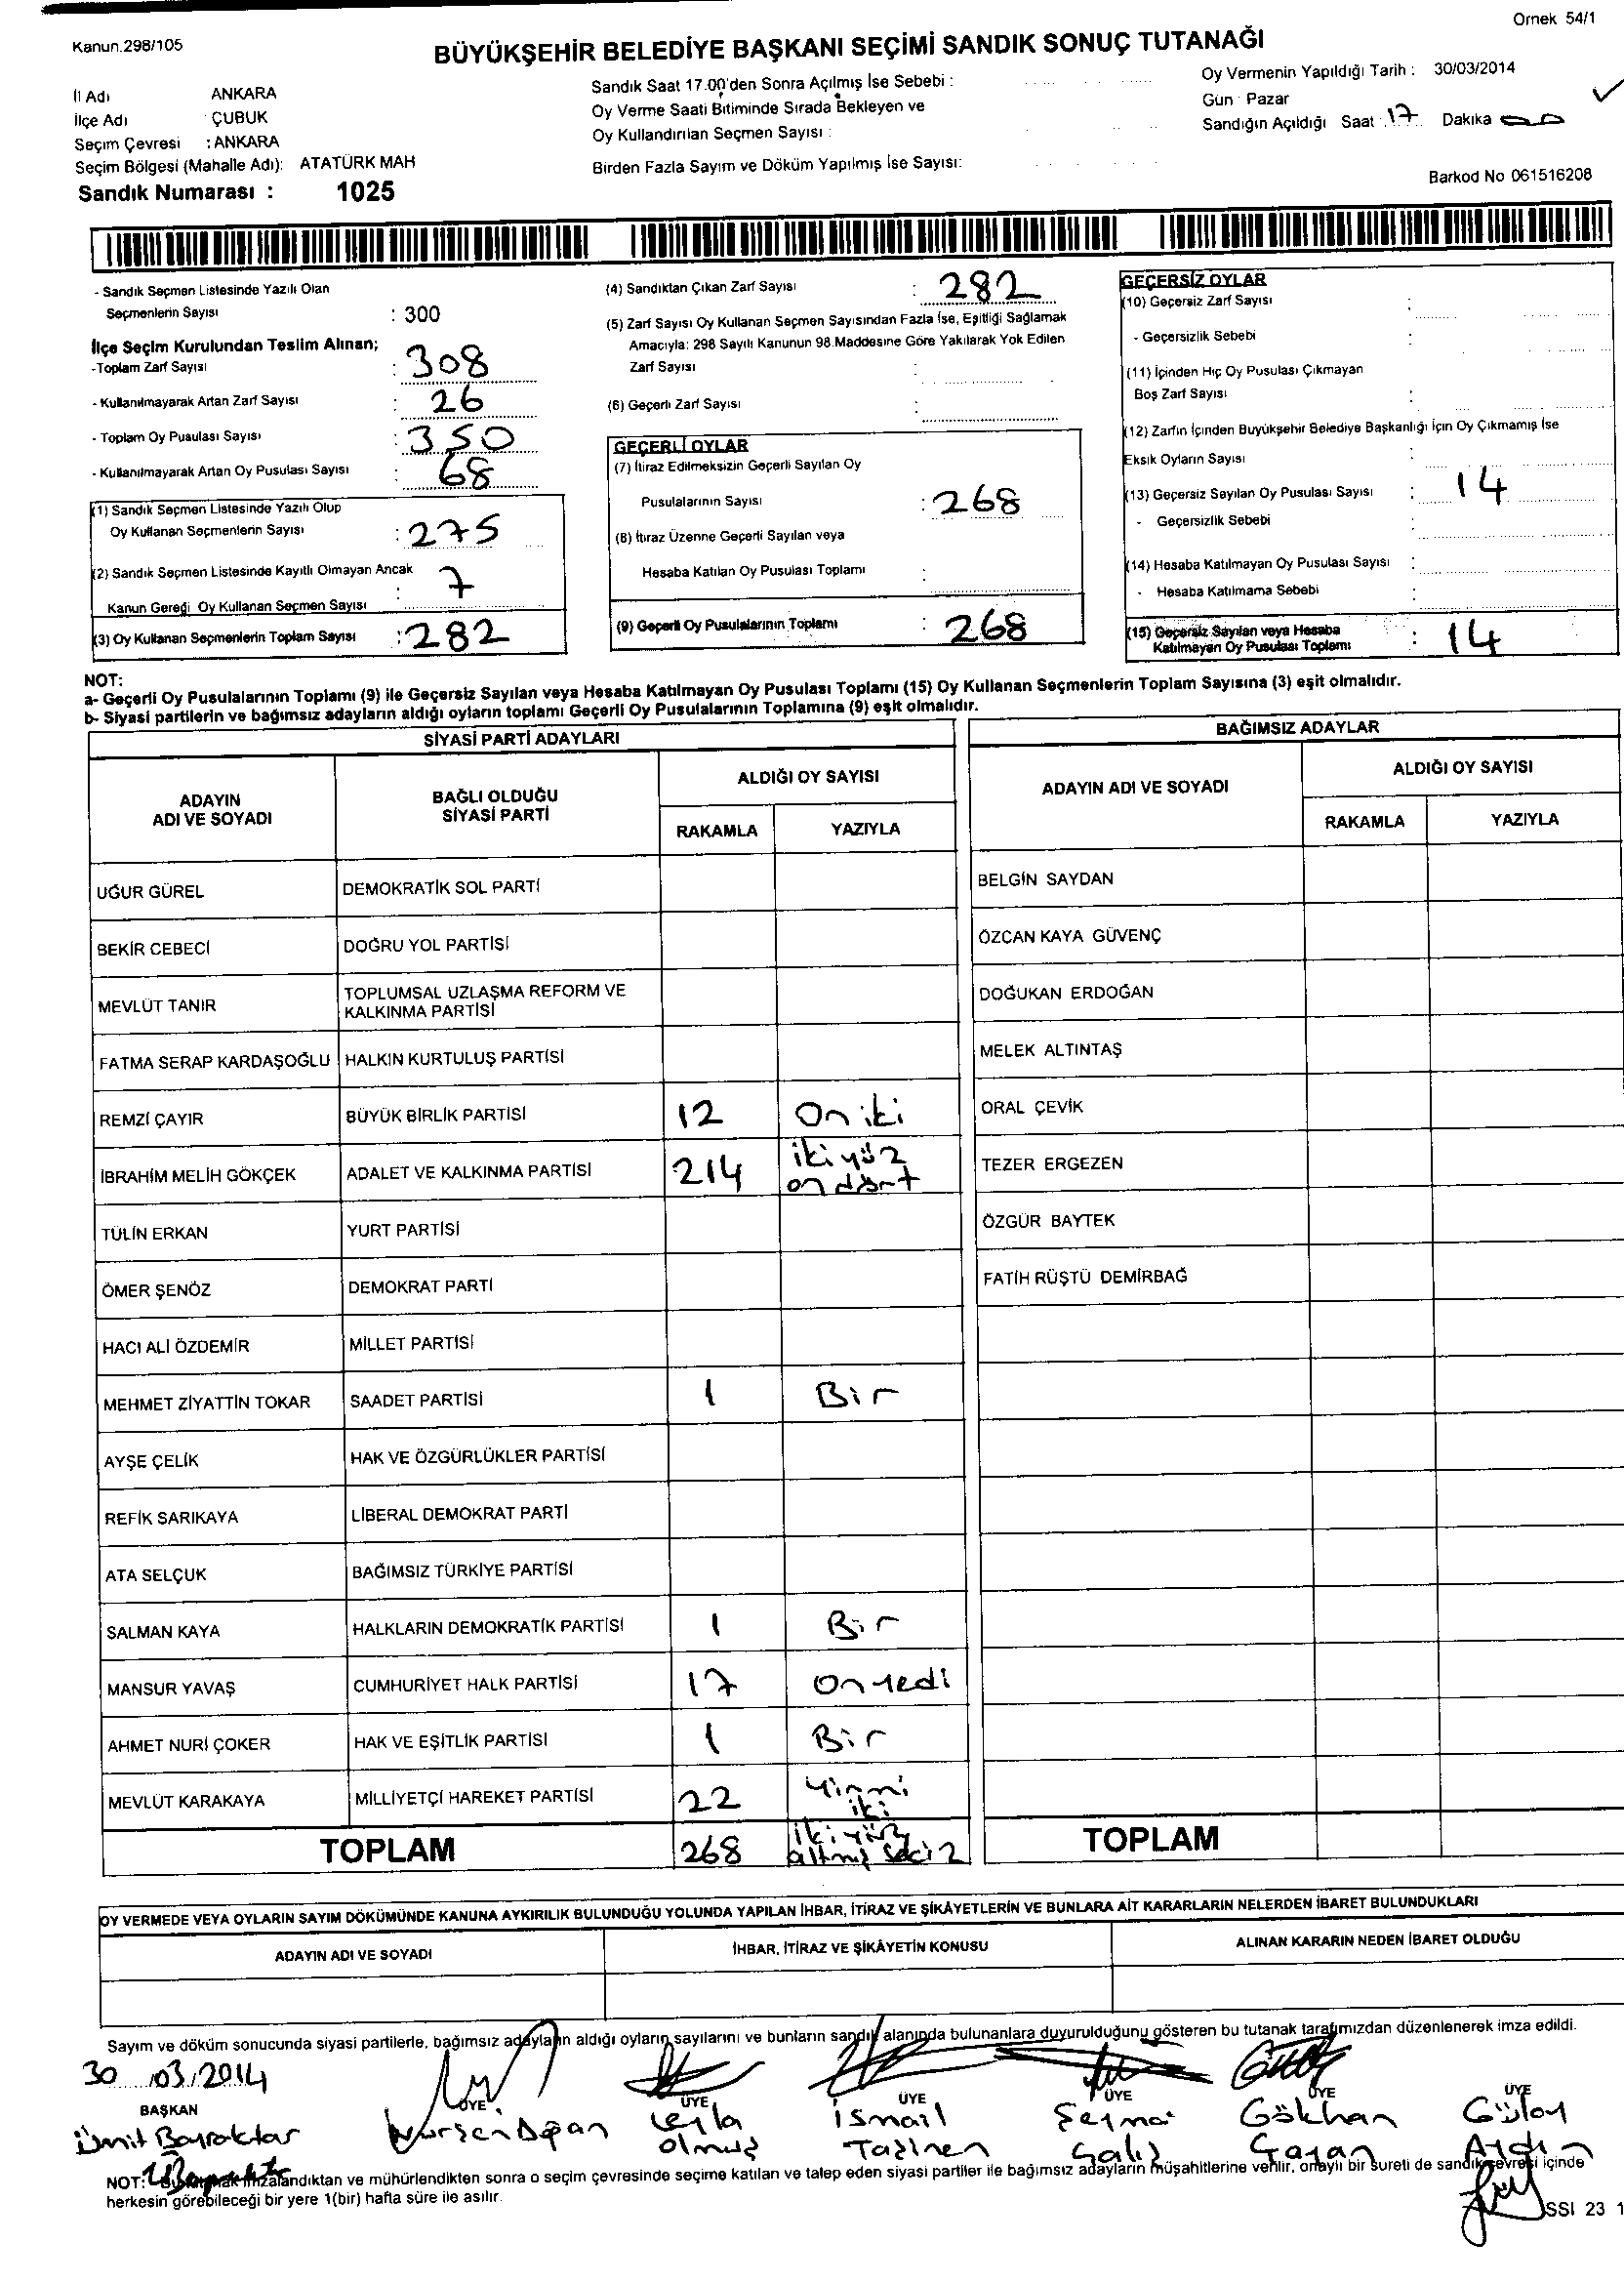 Ornek 54/1
Kanun.298/105
BÜYÜKŞEHİR BELEDİYE BAŞKANI SEÇİMİ SANDIK SONUÇ TUTANAĞI
İl Adı ANKARA
İlçe Adı ÇUBUK
Seçim Çevresi : ANKARA
Seçim Bölgesi (Mahalle Adı): ATATÜRK MAH
Sandık Numarası : 1025
Sandık Saat 17.00'den Sonra Açılmış İse Sebebi :
Oy Verme Saati Bitiminde Sırada Bekleyen ve
Oy Kullandırılan Seçmen Sayısı :
Birden Fazla Sayım ve Döküm Yapılmış İse Sayısı:
Oy Vermenin Yapıldığı Tarih : 30/03/2014
Gün : Pazar
Sandığın Açıldığı Saat : 17 Dakika 00
Barkod No 061516208
- Sandık Seçmen Listesinde Yazılı Olan
Seçmenlerin Sayısı : 300
İlçe Seçim Kurulundan Teslim Alınan;
-Toplam Zarf Sayısı : 308
- Kullanılmayarak Artan Zarf Sayısı : 26
- Toplam Oy Pusulası Sayısı : 350
- Kullanılmayarak Artan Oy Pusulası Sayısı : 68
(1) Sandık Seçmen Listesinde Yazılı Olup
Oy Kullanan Seçmenlerin Sayısı : 275
(2) Sandık Seçmen Listesinde Kayıtlı Olmayan Ancak
Kanun Gereği Oy Kullanan Seçmen Sayısı : 7
(3) Oy Kullanan Seçmenlerin Toplam Sayısı : 282
(4) Sandıktan Çıkan Zarf Sayısı : 282
(5) Zarf Sayısı Oy Kullanan Seçmen Sayısından Fazla İse, Eşitliği Sağlamak
Amacıyla: 298 Sayılı Kanunun 98.Maddesine Göre Yakılarak Yok Edilen
Zarf Sayısı :
(6) Geçerli Zarf Sayısı :
GEÇERLİ OYLAR
(7) İtiraz Edilmeksizin Geçerli Sayılan Oy
Pusulalarının Sayısı : 268
(8) İtiraz Üzerine Geçerli Sayılan veya
Hesaba Katılan Oy Pusulası Toplamı :
(9) Geçerli Oy Pusulalarının Toplamı : 268
GEÇERSİZ OYLAR
(10) Geçersiz Zarf Sayısı :
- Geçersizlik Sebebi :
(11) İçinden Hiç Oy Pusulası Çıkmayan
Boş Zarf Sayısı :
(12) Zarfın İçinden Büyükşehir Belediye Başkanlığı İçin Oy Çıkmamış İse
Eksik Oyların Sayısı :
(13) Geçersiz Sayılan Oy Pusulası Sayısı : 14
- Geçersizlik Sebebi :
(14) Hesaba Katılmayan Oy Pusulası Sayısı :
- Hesaba Katılmama Sebebi :
(15) Geçersiz Sayılan veya Hesaba
Katılmayan Oy Pusulası Toplamı : 14
NOT:
a- Geçerli Oy Pusulalarının Toplamı (9) ile Geçersiz Sayılan veya Hesaba Katılmayan Oy Pusulası Toplamı (15) Oy Kullanan Seçmenlerin Toplam Sayısına (3) eşit olmalıdır.
b- Siyasi partilerin ve bağımsız adayların aldığı oyların toplamı Geçerli Oy Pusulalarının Toplamına (9) eşit olmalıdır.
SİYASİ PARTİ ADAYLARI
ADAYIN ADI VE SOYADI BAĞLI OLDUĞU SİYASİ PARTİ ALDIĞI OY SAYISI
RAKAMLA YAZIYLA
UĞUR GÜREL DEMOKRATİK SOL PARTİ
BEKİR CEBECİ DOĞRU YOL PARTİSİ
MEVLÜT TANIR TOPLUMSAL UZLAŞMA REFORM VE KALKINMA PARTİSİ
FATMA SERAP KARDAŞOĞLU HALKIN KURTULUŞ PARTİSİ
REMZİ ÇAYIR BÜYÜK BİRLİK PARTİSİ 12 On iki
İBRAHİM MELİH GÖKÇEK ADALET VE KALKINMA PARTİSİ 214 iki yüz on dört
TÜLİN ERKAN YURT PARTİSİ
ÖMER ŞENÖZ DEMOKRAT PARTİ
HACI ALİ ÖZDEMİR MİLLET PARTİSİ
MEHMET ZİYATTİN TOKAR SAADET PARTİSİ 1 Bir
AYŞE ÇELİK HAK VE ÖZGÜRLÜKLER PARTİSİ
REFİK SARIKAYA LİBERAL DEMOKRAT PARTİ
ATA SELÇUK BAĞIMSIZ TÜRKİYE PARTİSİ
SALMAN KAYA HALKLARIN DEMOKRATİK PARTİSİ 1 Bir
MANSUR YAVAŞ CUMHURİYET HALK PARTİSİ 17 On yedi
AHMET NURİ ÇOKER HAK VE EŞİTLİK PARTİSİ 1 Bir
MEVLÜT KARAKAYA MİLLİYETÇİ HAREKET PARTİSİ 22 Yirmi iki
TOPLAM 268 iki yüz altmış seciz
BAĞIMSIZ ADAYLAR
ADAYIN ADI VE SOYADI ALDIĞI OY SAYISI
RAKAMLA YAZIYLA
BELGİN SAYDAN
ÖZCAN KAYA GÜVENÇ
DOĞUKAN ERDOĞAN
MELEK ALTINTAŞ
ORAL ÇEVİK
TEZER ERGEZEN
ÖZGÜR BAYTEK
FATİH RÜŞTÜ DEMİRBAĞ
TOPLAM
OY VERMEDE VEYA OYLARIN SAYIM DÖKÜMÜNDE KANUNA AYKIRILIK BULUNDUĞU YOLUNDA YAPILAN İHBAR, İTİRAZ VE ŞİKÂYETLERİN VE BUNLARA AİT KARARLARIN NELERDEN İBARET BULUNDUKLARI
ADAYIN ADI VE SOYADI İHBAR, İTİRAZ VE ŞİKÂYETİN KONUSU ALINAN KARARIN NEDEN İBARET OLDUĞU
Sayım ve döküm sonucunda siyasi partilerle, bağımsız adayların aldığı oyların sayılarını ve bunların sandık alanında bulunanlara duyurulduğunu gösteren bu tutanak tarafımızdan düzenlenerek imza edildi.
30/03/2014
BAŞKAN ÜYE ÜYE ÜYE ÜYE ÜYE ÜYE
Ümit Bayraktar Nurşen Doğan Leyla Olmuş İsmail Şeyma Gökhan Gülay Aydın
NOT: imzalandıktan ve mühürlendikten sonra o seçim çevresinde seçime katılan ve talep eden siyasi partiler ile bağımsız adayların müşahitlerine verilir, onaylı bir sureti de sandık çevresi içinde
herkesin görebileceği bir yere 1(bir) hafta süre ile asılır.
SSI 23 1